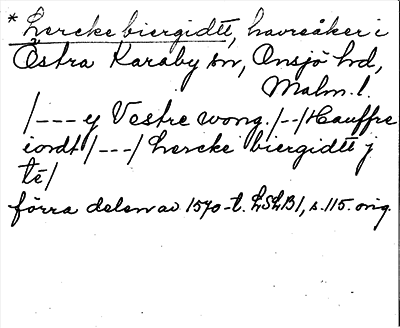 * Lercke biergidtt, havreåker i
Östra Karaby sn, Onsjö hd,
Malm. l.
/--- y Vestre wong. /--/ Hauffre
iordt /---/ Lercke biergidtt j
té/
förra delen av 1570-t. LSLB1, s. 115. orig.